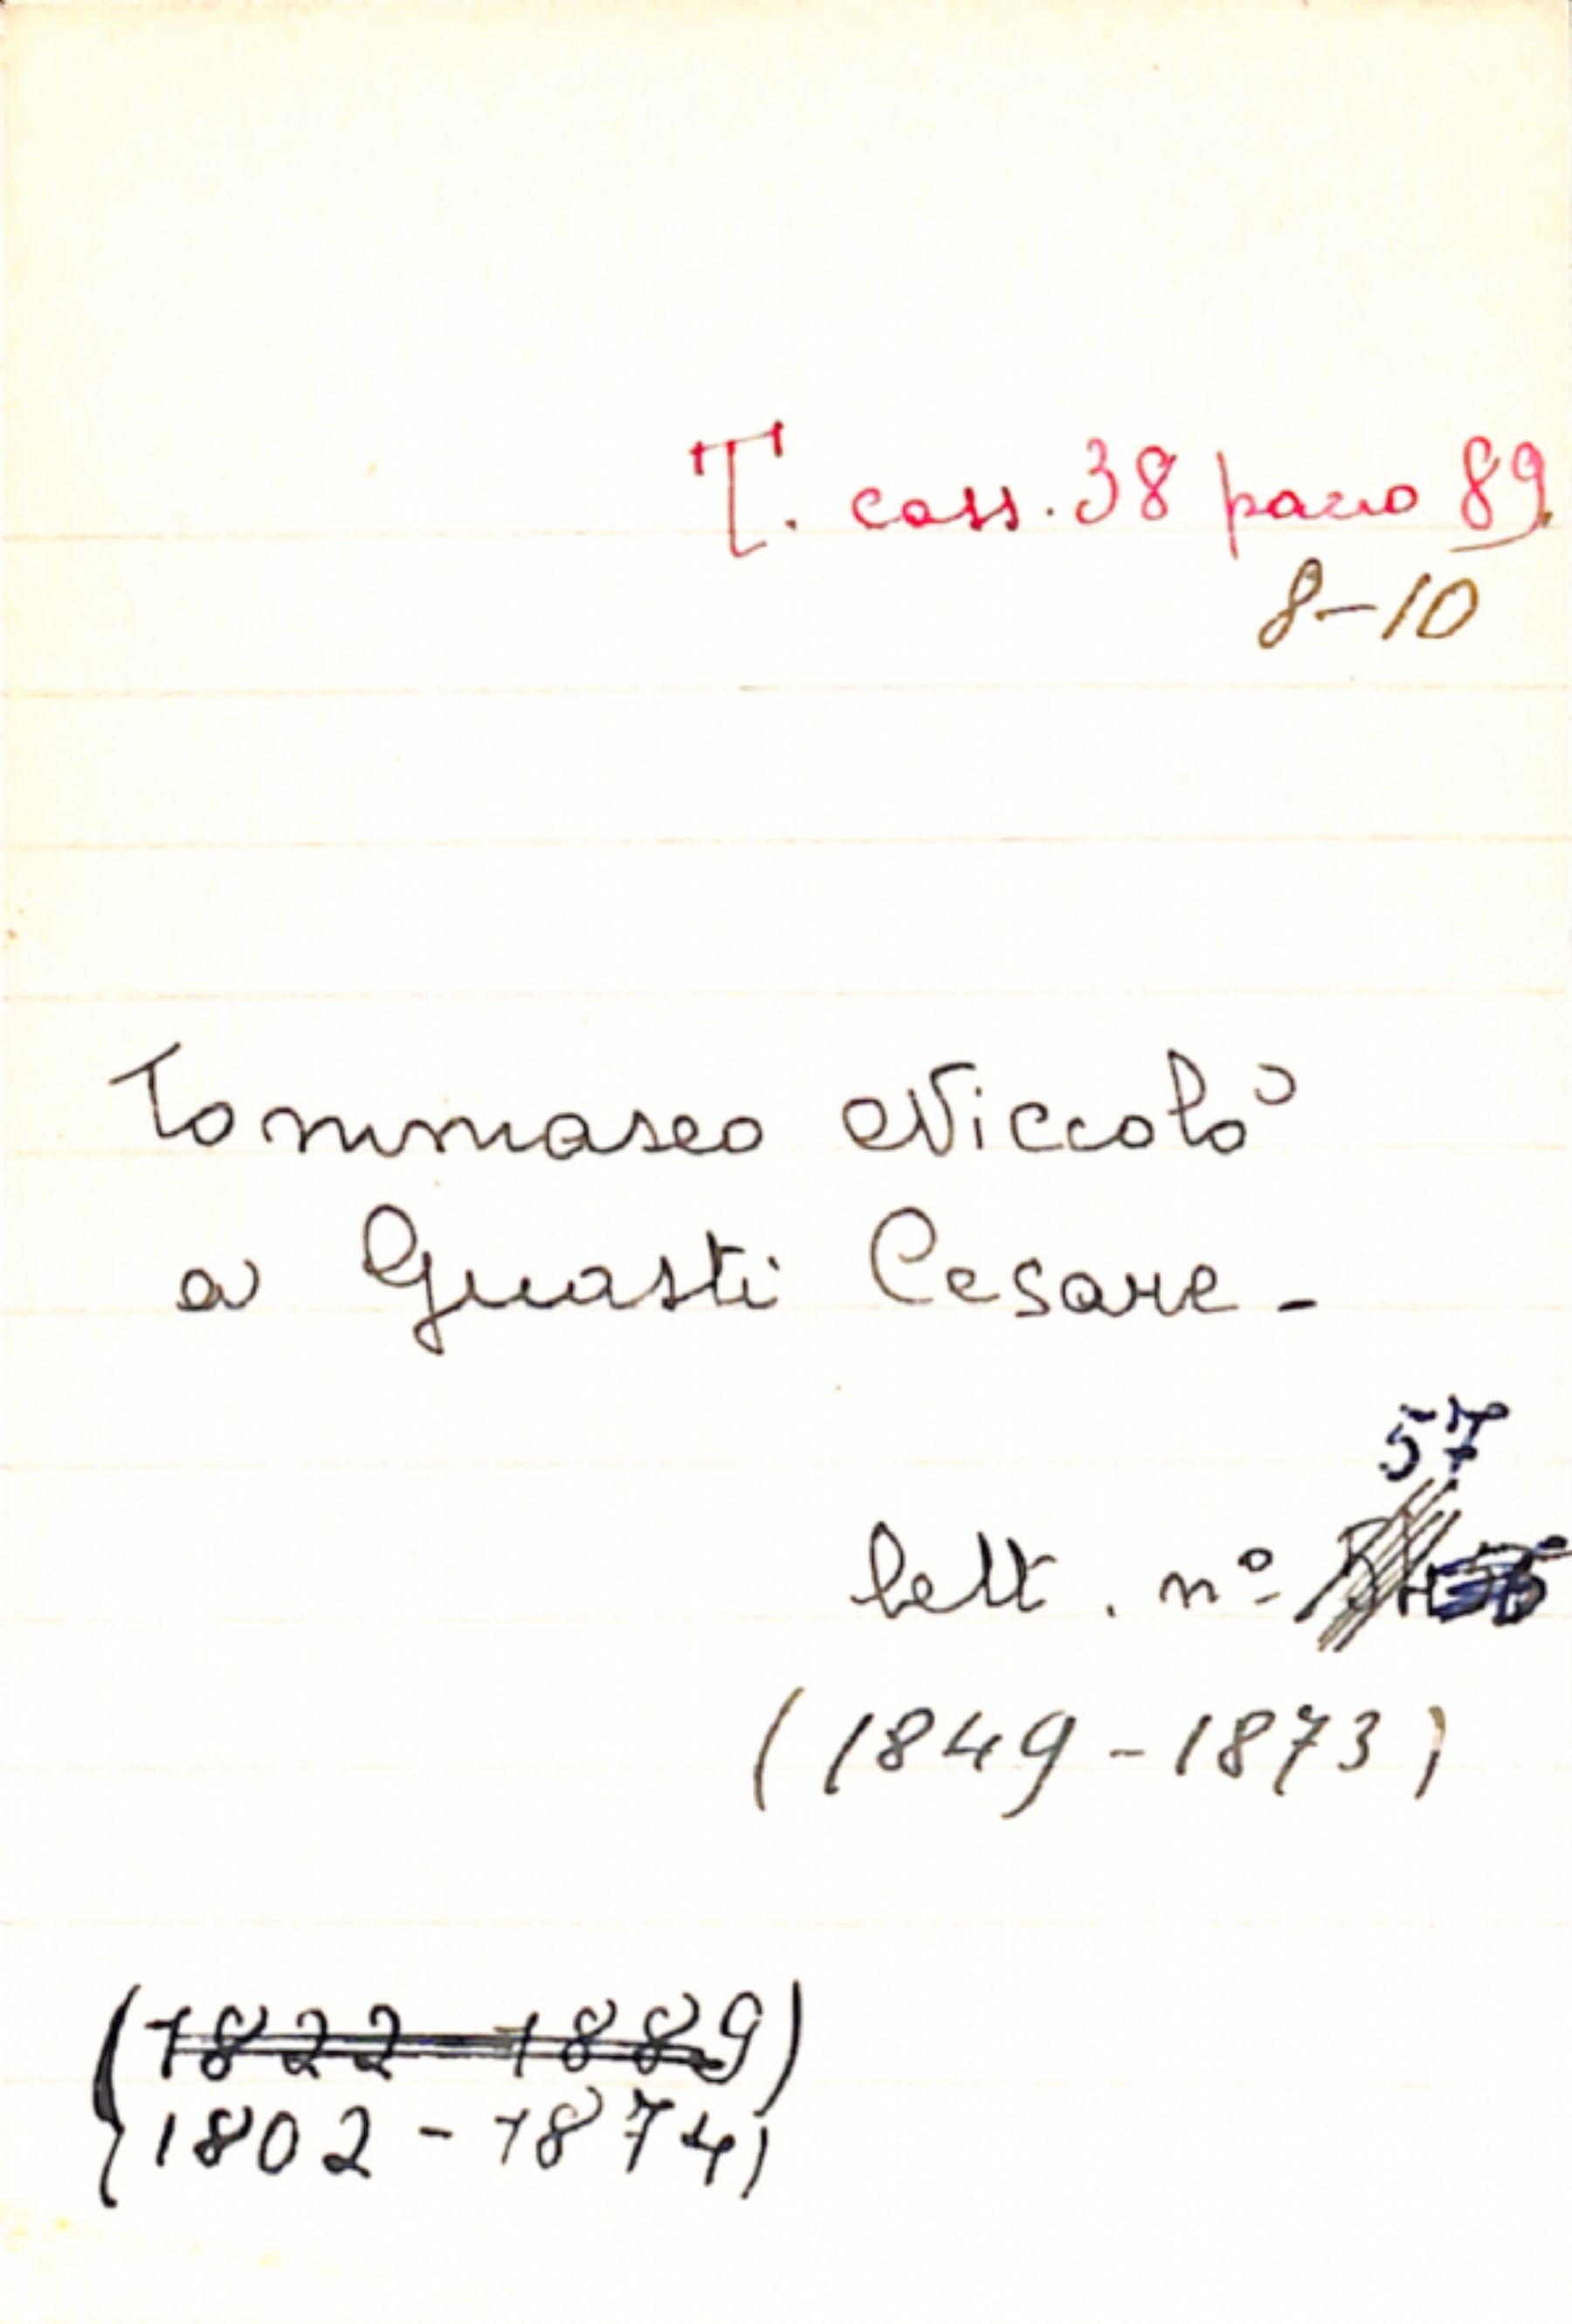 T. cass. 38 pacco 89.
8-10
Tommaseo Niccolò
a Guasti Cesare -
57
lett. nº
(1849-1873)
(1822 1889)
(1802-1874)